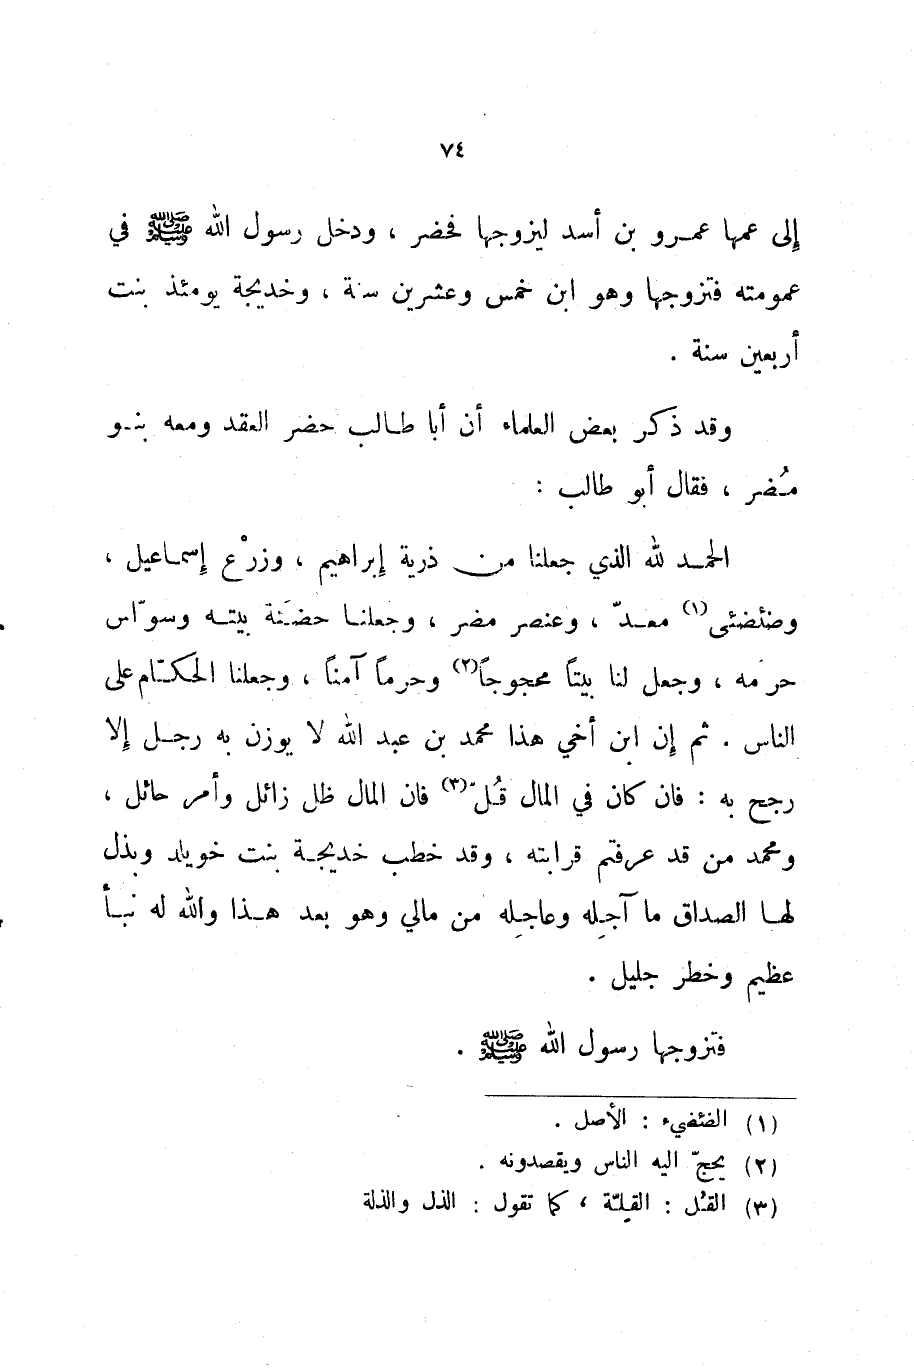 ٧٤
إلى عمها عمرو بن أسد ليزوجها فحضر ، ودخل رسول الله ﷺ في
عمومته فتزوجها وهو ابن خمس وعشرين سنة ، وخديجة يومئذ بنت
أربعين سنة .
وقد ذكر بعض العلماء أن أبا طالب حضر العقد ومعه بنو
مُضر ، فقال أبو طالب :
الحمد لله الذي جعلنا من ذرية إبراهيم ، وزرْع إسماعيل ،
وضئضئي(١) معدّ ، وعنصر مضر ، وجعلنا حضَنة بيته وسوّاس
حرَمه ، وجعل لنا بيتاً محجوجاً(٢) وحرماً آمناً ، وجعلنا الحكّام على
الناس . ثم إن ابن أخي هذا محمد بن عبد الله لا يوزن به رجل إلا
رجح به : فان كان في المال قُلّ(٣) فان المال ظل زائل وأمر حائل ،
ومحمد من قد عرفتم قرابته ، وقد خطب خديجة بنت خويلد وبذل
لها الصداق ما آجِله وعاجِله من مالي وهو بعد هذا والله له نبأ
عظيم وخطر جليل .
فتزوجها رسول الله ﷺ .
(١) الضئضيء : الأصل .
(٢) يحجّ اليه الناس ويقصدونه .
(٣) القُل : القِلّة ، كما تقول : الذل والذلة